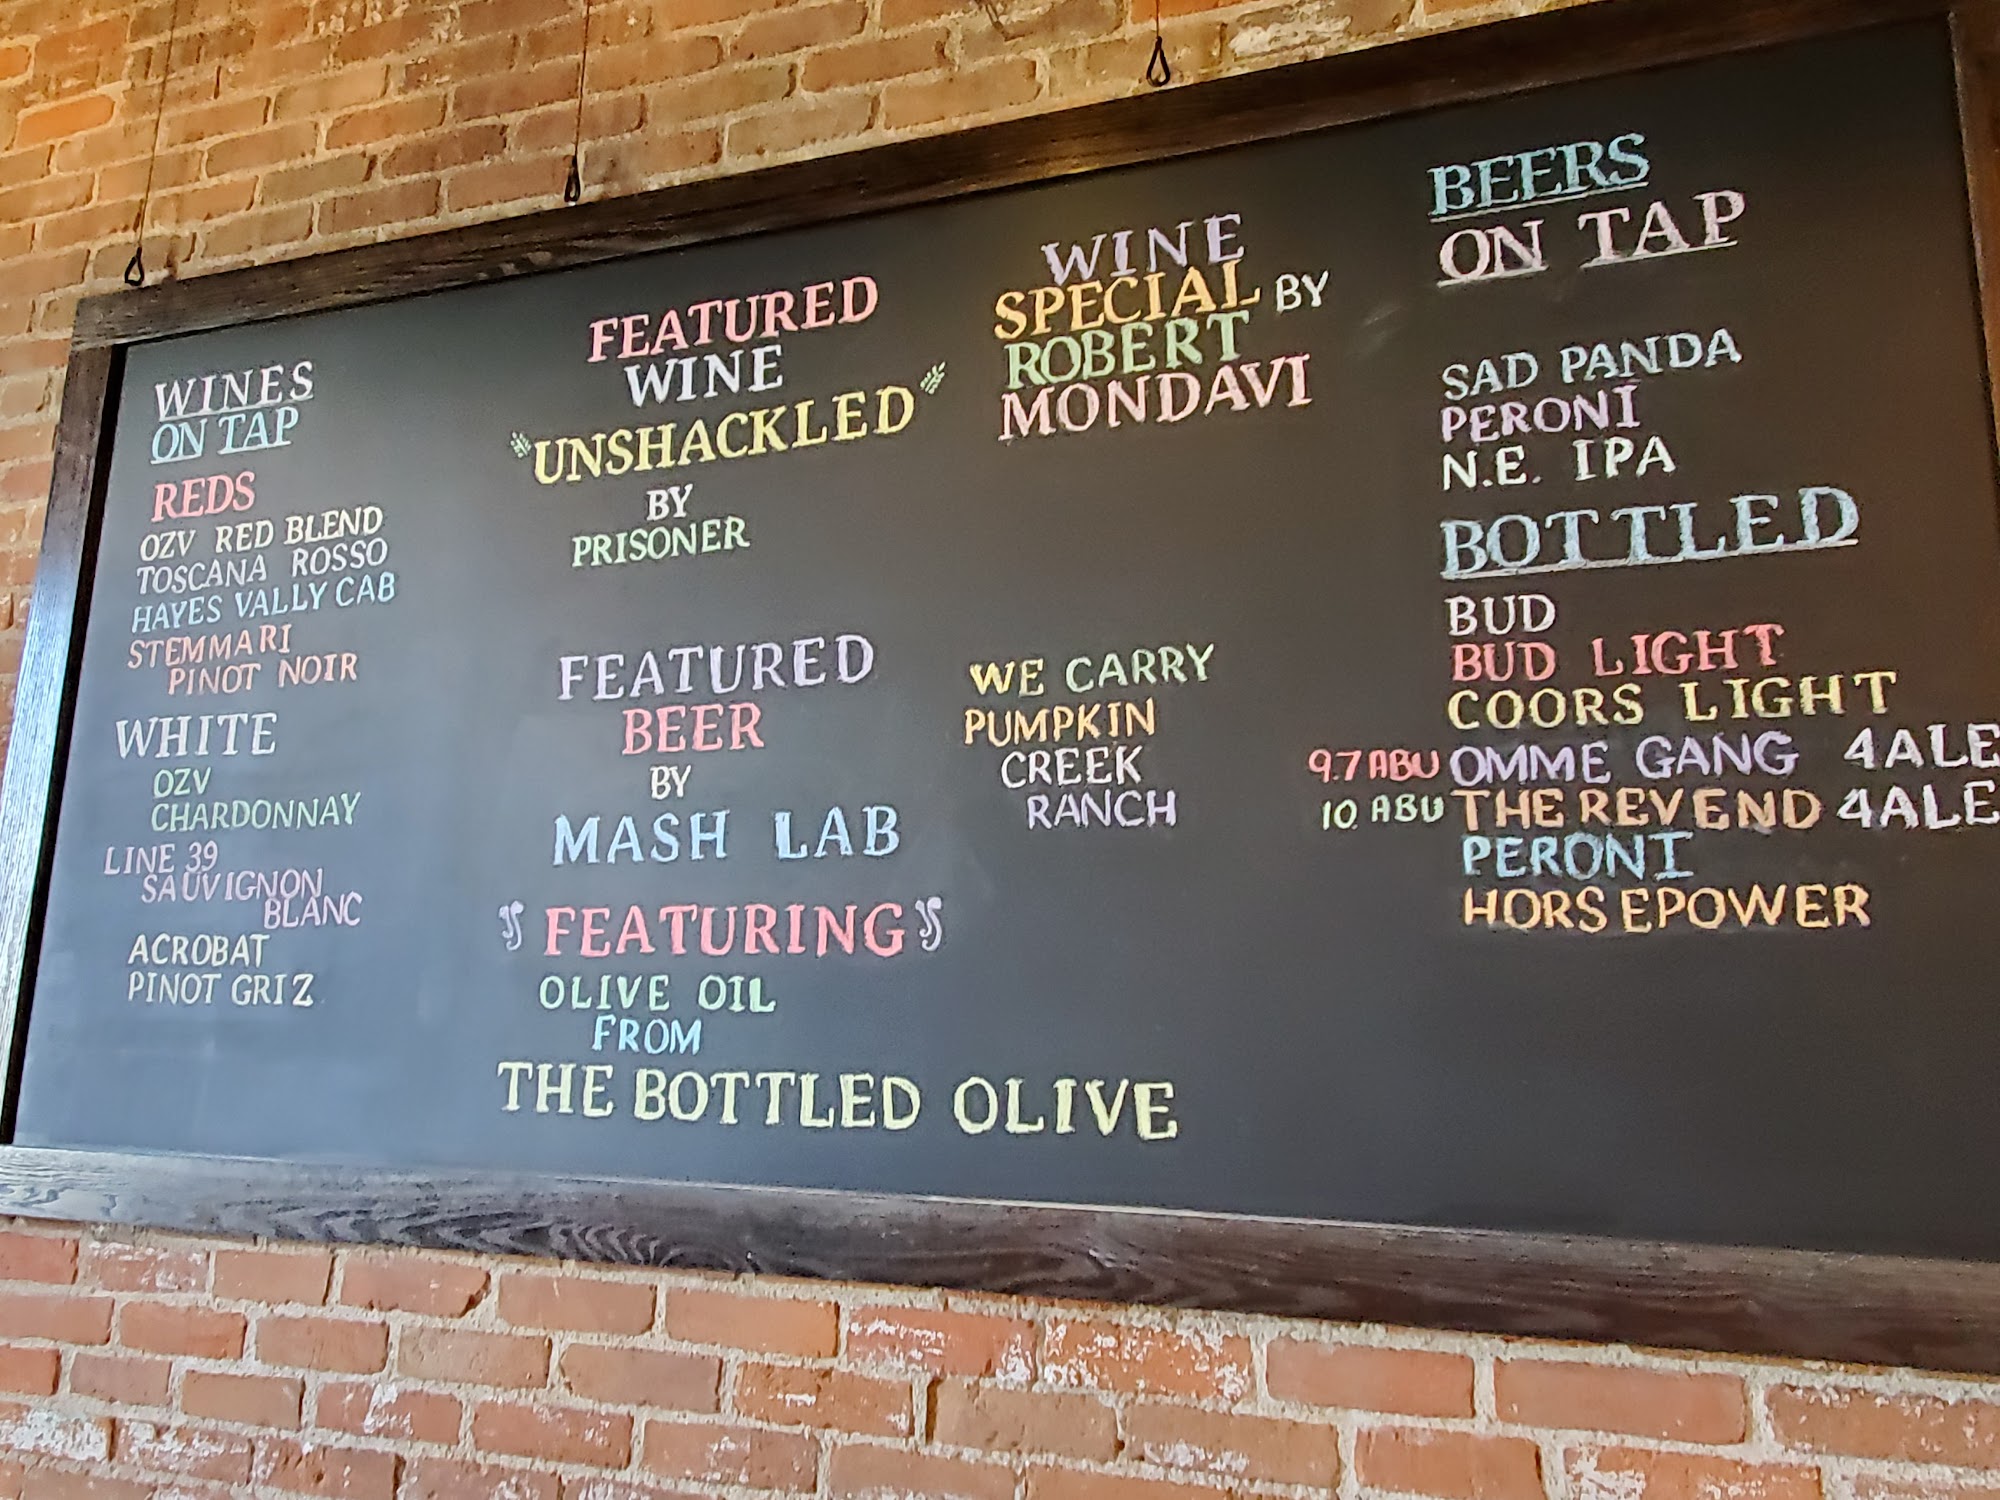 WINES
ON TAP
REDS
OZV RED BLEND
TOSCANA ROSSO
HAYES VALLY CAB
STEMMARI
PINOT NOIR
WHITE
OZV
CHARDONNAY
LINE 39
SAUVIGNON
BLANC
ACROBAT
PINOT GRIZ
FEATURED
WINE
"UNSHACKLED"
BY
PRISONER
FEATURED
BEER
BY
MASH LAB
FEATURING
OLIVE OIL
FROM
THE BOTTLED OLIVE
WINE
SPECIAL BY
ROBERT
MONDAVI
WE CARRY
PUMPKIN
CREEK
RANCH
BEERS
ON TAP
SAD PANDA
PERONI
N.E. IPA
BOTTLED
BUD
BUD LIGHT
COORS LIGHT
9.7 ABU OMME GANG 4ALE
10. ABU THE REVEND 4ALE
PERONI
HORSEPOWER